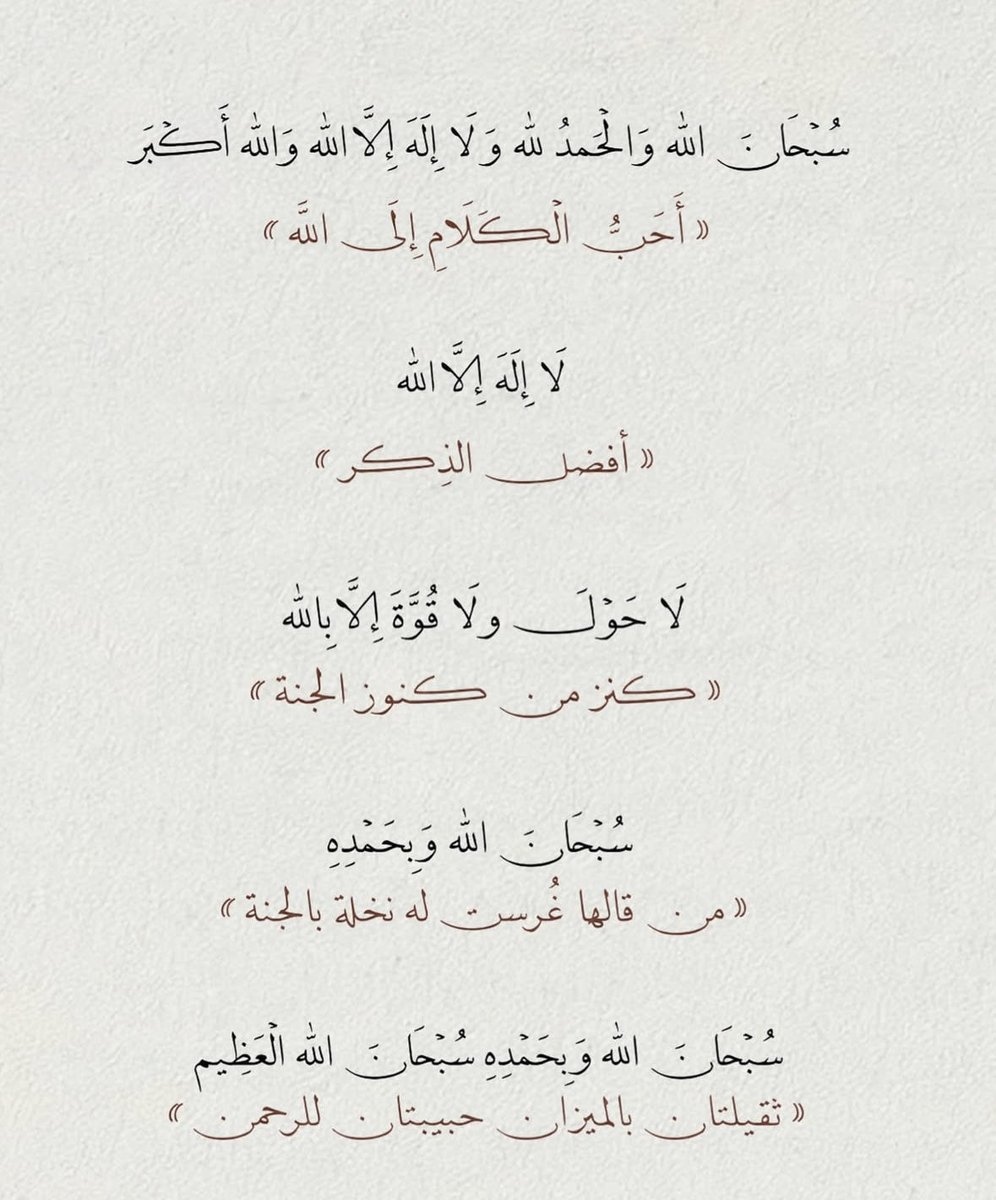 سُبْحَانَ الله وَالْحَمدُ لله وَلَا إِلَهَ إِلَّا الله وَالله أَكْبَرَ
« أَحَبُّ الْكَلَامِ إِلَى اللَّه »
لَا إِلَهَ إِلَّا الله
« أفضل الذِكر »
لَا حَوْلَ ولَا قُوَّةَ إِلَّا بِالله
« كنز من كنوز الجنة »
سُبْحَانَ الله وَبِحَمْدِهِ
« من قالها غُرست له نخلة بالجنة »
سُبْحَانَ الله وَبِحَمْدِهِ سُبْحَانَ الله الْعَظِيم
« ثقيلتان بالميزان حبيبتان للرحمن »